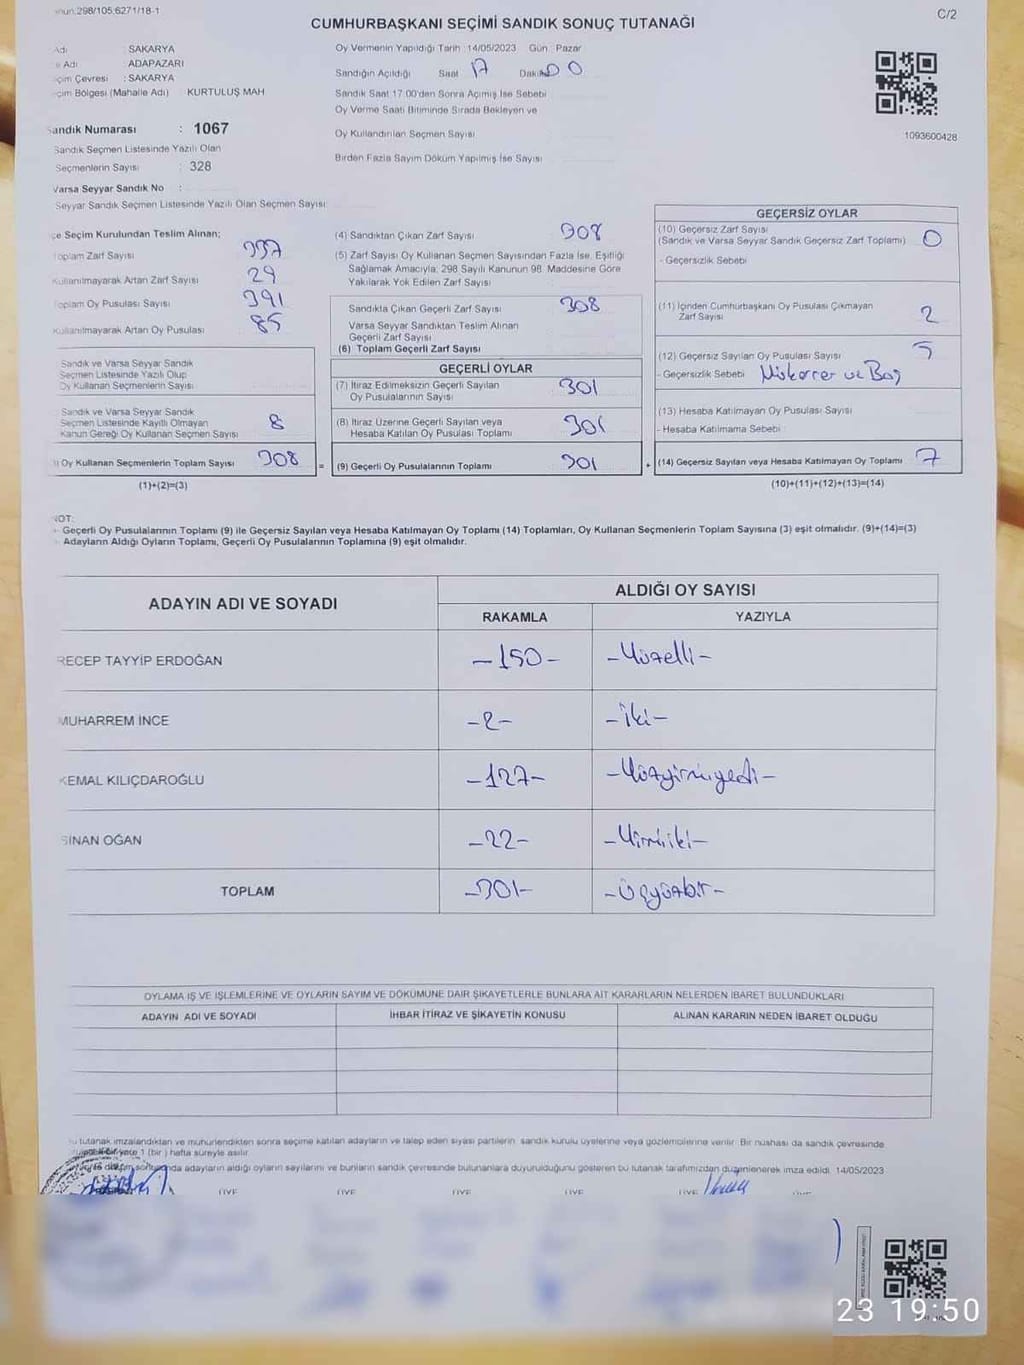 298/105.6271/18-1
C/2
CUMHURBAŞKANI SEÇİMİ SANDIK SONUÇ TUTANAĞI
Adı : SAKARYA
Adı : ADAPAZARI
çim Çevresi : SAKARYA
çim Bölgesi (Mahalle Adı) KURTULUŞ MAH
Sandık Numarası : 1067
Sandık Seçmen Listesinde Yazılı Olan
Seçmenlerin Sayısı : 328
Varsa Seyyar Sandık No :
Seyyar Sandık Seçmen Listesinde Yazılı Olan Seçmen Sayısı
Oy Vermenin Yapıldığı Tarih 14/05/2023 Gün Pazar
Sandığın Açıldığı Saat 17 Dakika 00
Sandık Saat 17:00'den Sonra Açımış İse Sebebi
Oy Verme Saati Bitiminde Sırada Bekleyen ve
Oy Kullandırılan Seçmen Sayısı
Birden Fazla Sayım Döküm Yapılmış İse Sayısı
1093600428
çe Seçim Kurulundan Teslim Alınan;
Toplam Zarf Sayısı 337
Kullanılmayarak Artan Zarf Sayısı 29
Toplam Oy Pusulası Sayısı 391
Kullanılmayarak Artan Oy Pusulası 85
Sandık ve Varsa Seyyar Sandık
Seçmen Listesinde Yazılı Olup
Oy Kullanan Seçmenlerin Sayısı
Sandık ve Varsa Seyyar Sandık
Seçmen Listesinde Kayıtlı Olmayan
Kanun Gereği Oy Kullanan Seçmen Sayısı 8
) Oy Kullanan Seçmenlerin Toplam Sayısı 308 =
(1)+(2)=(3)
(4) Sandıktan Çıkan Zarf Sayısı 308
(5) Zarf Sayısı Oy Kullanan Seçmen Sayısından Fazla İse, Eşitliği
Sağlamak Amacıyla, 298 Sayılı Kanunun 98. Maddesine Göre
Yakılarak Yok Edilen Zarf Sayısı
Sandıkta Çıkan Geçerli Zarf Sayısı 308
Varsa Seyyar Sandıktan Teslim Alınan
Geçerli Zarf Sayısı
(6) Toplam Geçerli Zarf Sayısı
GEÇERLİ OYLAR
(7) İtiraz Edilmeksizin Geçerli Sayılan
Oy Pusulalarının Sayısı 301
(8) İtiraz Üzerine Geçerli Sayılan veya
Hesaba Katılan Oy Pusulası Toplamı 301
(9) Geçerli Oy Pusulalarının Toplamı 301 +
GEÇERSİZ OYLAR
(10) Geçersiz Zarf Sayısı
(Sandık ve Varsa Seyyar Sandık Geçersiz Zarf Toplamı) 0
- Geçersizlik Sebebi
(11) İçinden Cumhurbaşkanı Oy Pusulası Çıkmayan
Zarf Sayısı 2
(12) Geçersiz Sayılan Oy Pusulası Sayısı 5
- Geçersizlik Sebebi ve Boş
(13) Hesaba Katılmayan Oy Pusulası Sayısı
- Hesaba Katılmama Sebebi
(14) Geçersiz Sayılan veya Hesaba Katılmayan Oy Toplamı 7
(10)+(11)+(12)+(13)=(14)
NOT:
- Geçerli Oy Pusulalarının Toplamı (9) ile Geçersiz Sayılan veya Hesaba Katılmayan Oy Toplamı (14) Toplamları, Oy Kullanan Seçmenlerin Toplam Sayısına (3) eşit olmalıdır. (9)+(14)=(3)
- Adayların Aldığı Oyların Toplamı, Geçerli Oy Pusulalarının Toplamına (9) eşit olmalıdır.
ADAYIN ADI VE SOYADI
ALDIĞI OY SAYISI
RAKAMLA YAZIYLA
RECEP TAYYİP ERDOĞAN -150- -Yüzelli-
MUHARREM İNCE -2- -İki-
KEMAL KILIÇDAROĞLU -127- -Yüzyirmiyedi-
SİNAN OĞAN -22- -Yirmiiki-
TOPLAM -301- -Üçyüzbir-
OYLAMA İŞ VE İŞLEMLERİNE VE OYLARIN SAYIM VE DÖKÜMÜNE DAİR ŞİKAYETLERLE BUNLARA AİT KARARLARIN NELERDEN İBARET BULUNDUKLARI
ADAYIN ADI VE SOYADI İHBAR İTİRAZ VE ŞİKAYETİN KONUSU ALINAN KARARIN NEDEN İBARET OLDUĞU
tutanak imzalandıktan ve mühürlendikten sonra seçime katılan adayların ve talep eden siyasi partilerin sandık kurulu üyelerine veya gözlemcilerine verilir. Bir nüshası da sandık çevresinde
1 (bir) hafta süreyle asılır.
sonunda adayların aldığı oyların sayılarını ve bunların sandık çevresinde bulunanlara duyurulduğunu gösteren bu tutanak tarafımızdan düzenlenerek imza edildi. 14/05/2023
ÜYE ÜYE ÜYE ÜYE ÜYE
23 19:50